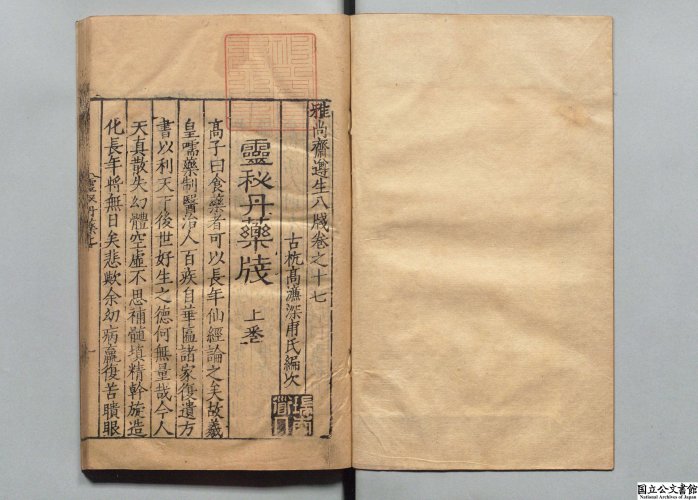 雅尚齋遵生八牋卷之十七
古杭高濂深甫氏編次
靈秘丹藥牋 上卷
高子曰食藥者可以長年仙經論之矣故羲
皇嚐藥制醫治人百疾自華區諸家復遺方
書以利天下後世好生之德何無量哉今人
天真散失幻體空虛不思補髓填精斡旋造
化長年將無日矣悲歟余幼病羸復苦瞶眼
国立公文書館
National Archives of Japan